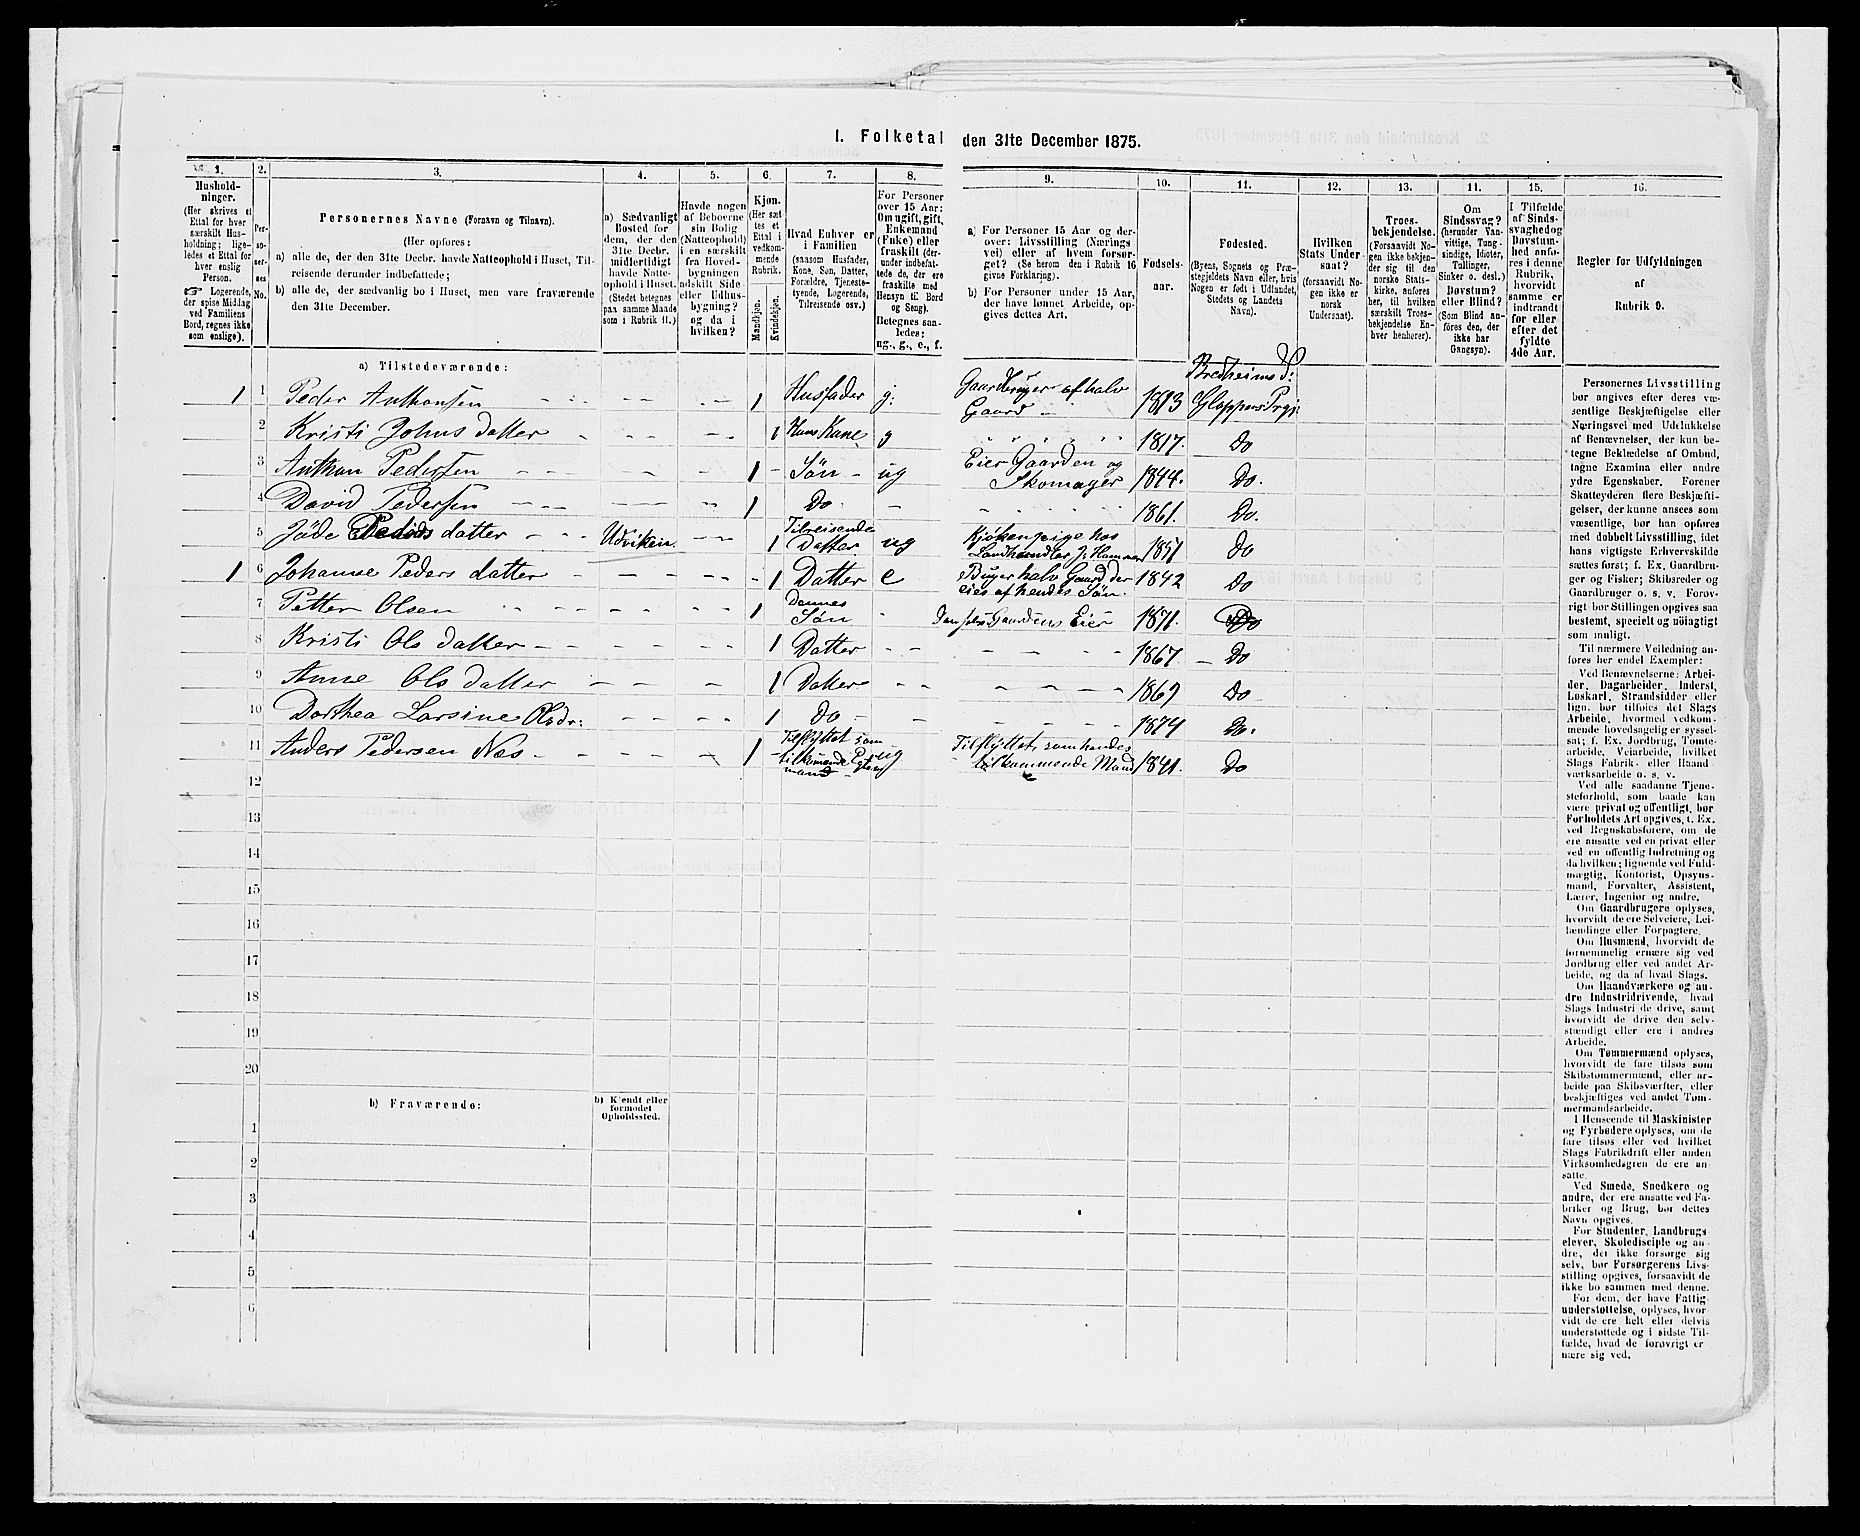 1. Folketal den 31te December 1875.
1. 2. 3. 4. 5. 6. 7. 8. 9. 10. 11. 12. 13. 11. 15. 16.
Hushold-
ninger.
(Her skrives et
Ettal for hver
særskilt Hus-
holdning; lige-
ledes et Ettal for
hver enslig
Person.
☞ Logerende,
der spise Middag
ved Familiens
Bord, regnes ikke
som enslige).
Per-
so-
ner-
nes
No.
Personernes Navne (Fornavn og Tilnavn).
(Her opføres:
a) alle de, der den 31te Decbr. havde Natteophold i Huset, Til-
reisende derunder indbefattede;
b) alle de, der sædvanlig bo i Huset, men vare fraværende
den 31te December.
a) Sædvanligt
Bosted for
dem, der den
31te Decbr.
midlertidigt
havde Natte-
ophold i Huset.
(Stedet betegnes
paa samme Maade
som i Rubrik 11.)
Havde nogen
af Beboerne
sin Bolig
(Natteophold)
i en særskilt
fra Hoved-
bygningen
adskilt Side-
eller Udhus-
bygning?
og da i
hvilken?
Kjøn.
(Her sæt-
tes et
Ettal i
vedkom-
mende
Rubrik.
Mandkjøn.
Kvindekjøn.
Hvad Enhver er
i Familien
(saasom Husfader,
Kone, Søn, Datter,
Forældre, Tjeneste-
tyende, Logerende,
Tilreisende osv.)
For Personer
over 15 Aar:
Om ugift, gift,
Enkemand
(Enke) eller
fraskilt (der-
under indbefat-
tede de, der ere
fraskilte med
Hensyn til Bord
og Seng).
Betegnes saa-
ledes:
ug., g., e., f.
a) For Personer 15 Aar og der-
over: Livsstilling (Nærings
vei) eller af hvem forsør-
get? (Se herom den i Rubrik 16
givne Forklaring).
b) For Personer under 15 Aar,
der have lønnet Arbeide, op-
gives dettes Art.
Fødsels-
aar.
Fødested.
(Byens, Sognets og Præ-
stegjeldets Navn eller, hvis
Nogen er født i Udlandet,
Stedets og Landets
Navn).
Hvilken
Stats Under-
saat?
(forsaavidt No-
gen ikke er
norsk
Undersaat).
Troes-
bekjendelse.
(Forsaavidt No-
gen ikke bekjen-
der sig til den
norske Stats-
kirke, anføres
her, til hvilken
særskilt Troes-
bekjendelse En-
hver henhører).
Om
Sindssvag?
(herunder Van-
vittige, Tung-
sindige, Idioter,
Tullinger,
Sinker o. desl.)
Døvstum?
eller Blind?
(Som Blind an-
føres den, der
ikke har
Gangsyn).
I Tilfælde
af Sinds-
svaghed og
Døvstum-
hed anfø-
res i denne
Rubrik,
hvorvidt
samme er
indtraadt
før eller
efter det
fyldte
4de Aar.
Regler for Udfyldningen
af
Rubrik 9.
a) Tilstedeværende:
Bredheims S:
1 1 Peder Anthonsen 1 Husfader g: Gaardbruger af halv Gaard 1813 Gloppens Prgj:
2 Kristi Johns datter 1 Hans Kone g 1817. Do
3 Anthon Pedersen 1 Søn ug Eier Gaarden og Skomager 1844. Do.
4 David Pedersen 1 Do 1861. Do.
5 Jøde Peders datter Udviken 1 Tilreisende Datter ug Kjøkenpige hos Landhandler J. Hammer 1857 Do
1 6 Johanne Peders datter 1 Datter e Buger halv Gaard der eies af hendes Søn. 1842 Do
7 Petter Olsen 1 Dennes Søn Gaardens Eier 1871. Do
8 Kristi Ols datter 1 Datter 1867. Do
9 Anne Ols datter 1 Datter 1869 Do
10 Dorthea Larsine Olsdr: 1 Do 1874 Do.
11 Anders Pedersen Nes 1 Tilflyttet som tilkomende Egtemand ug Tilflyttet som hendes tilkommende Mand 1841. Do
12
13
14
15
16
17
18
19
20
b) Fraværende:
b) Kjendt eller
formodet
Opholdssted.
1
2
3
4
5
6
Personernes Livsstilling
bør angives efter deres væ-
sentlige Beskjæftigelse eller
Næringsvei med Udelukkelse
af Benævnelser, der kun be-
tegne Beklædelse af Ombud,
tagne Examina eller andre
ydre Egenskaber. Forener
Skatteyderen flere Beskjæfti-
gelser, der kunne ansees som
væsentlige, bør han opføres
med dobbelt Livsstilling, idet
hans vigtigste Erhvervskilde
sættes først; f. Ex. Gaardbru-
ger og Fisker; Skibsreder og
Gaardbruger o. s. v. Forøv-
rigt bør Stillingen opgives saa
bestemt, specielt og nøiagtigt
som muligt.
Til nærmere Veiledning an-
føres her endel Exempler:
Ved Benævnelserne: Arbei-
der, Dagarbeider, Inderst,
Løskarl, Strandsidder eller
lign. bør tilføies det Slags
Arbeide, hvormed vedkom-
mende hovedsagelig er syssel-
sat; f. Ex. Jordbrug, Tomte-
arbeide, Veiarbeide, hvilket
Slags Fabrik- eller Haand-
værksarbeide o. s. v.
Ved alle saadanne Tjene-
steforhold, som baade kan
være privat og offentligt, bør
Forholdets Art opgives, t. Ex.
ved Regnskabsførere, om de
ere ansatte ved en privat eller
ved en offentlig Indretning og
da hvilken; lignende ved Fuld-
mægtig, Kontorist, Opsyns-
mand, Forvalter, Assistent,
Lærer, Ingeniør og andre.
Om Gaardbrugere oplyses,
hvorvidt de ere Selveiere, Lei-
lændinge eller Forpagtere.
Om Husmænd, hvorvidt de
fornemmelig ernære sig ved
Jordbrug eller ved andet Ar-
beide, og da af hvad Slags.
Om Haandværkere og an-
dre Industridrivende, hvad
Slags Industri de drive, samt
hvorvidt de drive den selv-
stændigt eller ere i andres
Arbeide.
Om Tømmermænd oplyses,
hvorvidt de fare tilsøs som
Skibstømmermænd, eller ar-
beide paa Skibsværfter, eller
beskjæftiges ved andet Tøm-
mermandsarbeide.
I Henseende til Maskinister
og Fyrbødere oplyses, om de
fare tilsøs eller ved hvilket
Slags Fabrikdrift eller anden
Virksomhedsgren de ere an-
satte.
Ved Smede, Snedkere og
andre, der ere ansatte ved Fa-
briker og Brug, bør dettes
Navn opgives.
For Studenter, Landbrugs-
elever, Skoledisciple og an-
dre, der ikke forsørge sig
selv, bør Forsørgerens Livs-
stilling opgives, forsaavidt de
ikke bo sammen med denne.
For dem, der have Fattig-
understøttelse, oplyses, hvor-
vidt de ere helt eller delvis
understøttede og i sidste Til-
fælde, hvad de forøvrigt er
nære sig ved.